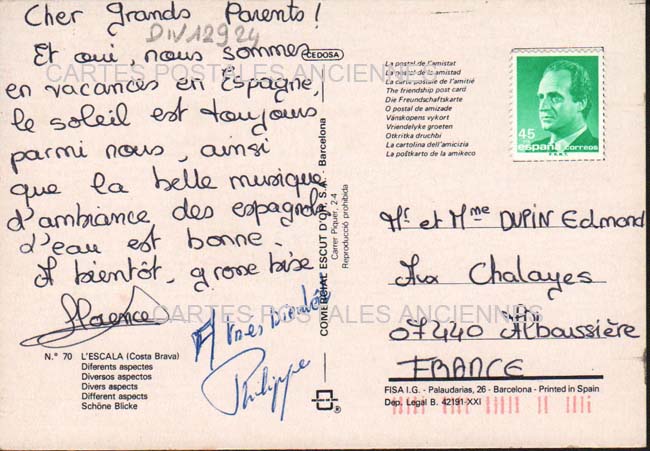 Cher grands Parents!
DIV12924
Et oui, nous sommes
en vacances en Espagne,
le soleil est toujours
parmi nous, ainsi
que la belle musique
d'ambiance des espagnols
d'eau est bonne.
A bientôt, grosse bise
Florence
A très bientôt
Philippe
CARTES POSTALES ANCIENNES
CARTES POSTALES ANCIENNES
N.° 70 L'ESCALA (Costa Brava)
Diferents aspectes
Diversos aspectos
Divers aspects
Different aspects
Schöne Blicke
CEDOSA
COMERCIAL ESCUT D'OR, S.A. - Barcelona
Carrer Piquer, 2-4
Reproducció prohibida
®
La postal de l'amistat
La postal de la amistad
La carte postale de l'amitié
The friendship post card
Die Freundschaftskarte
O postal de amizade
Vänskopens vykort
Vriendelyke groeten
Otkritka druchbi
La cartolina dell'amicizia
La poŝtkarto de la amikeco
45
españa correos
Mr et Mme DUPIN Edmond
Aux Chalayes
07440 Alboussière
FRANCE
FISA I.G. - Palaudarias, 26 - Barcelona - Printed in Spain
Dep. Legal B. 42191-XXI